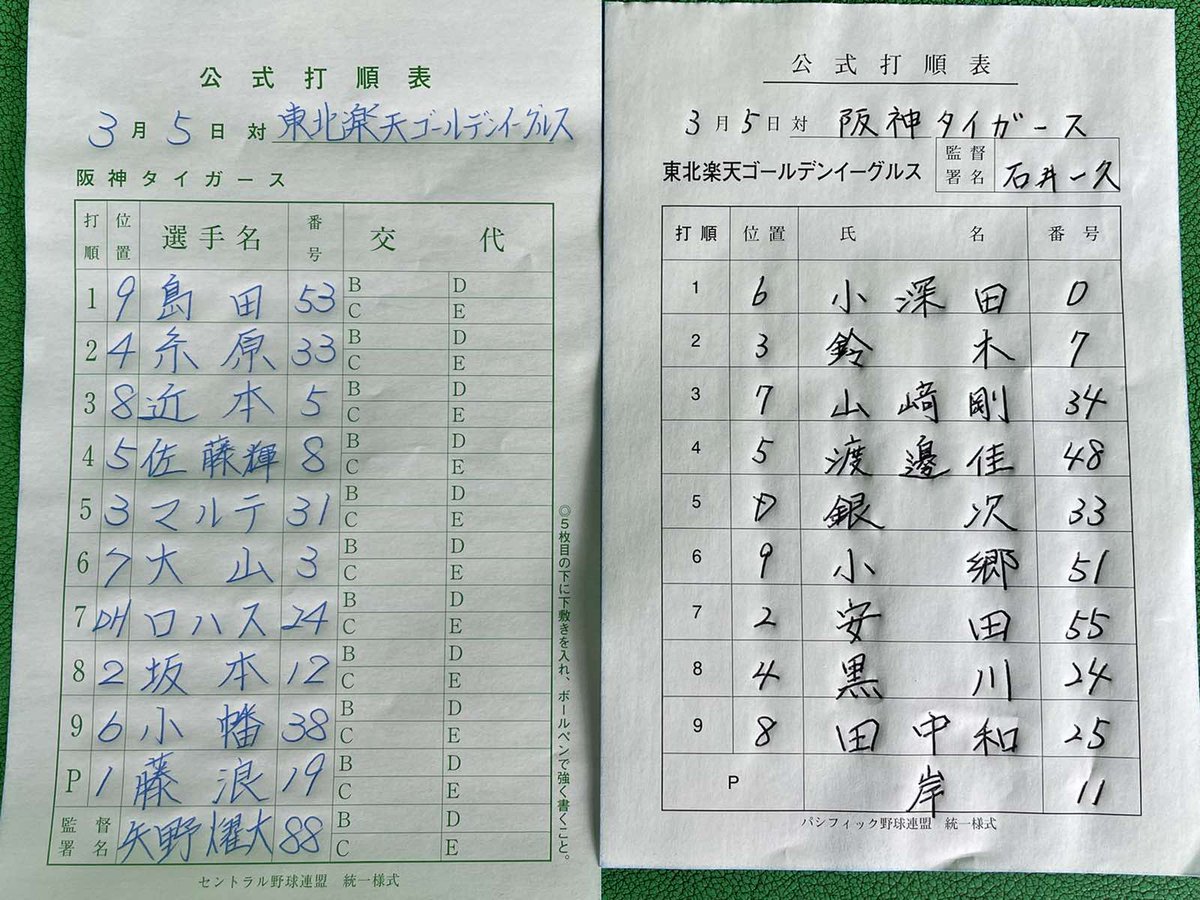 公式打順表
3月5日対 東北楽天ゴールデンイーグルス
阪神タイガース
打順 位置 選手名 番号 交代
1 9 島田 53 B D C E
2 4 糸原 33 B D C E
3 8 近本 5 B D C E
4 5 佐藤輝 8 B D C E
5 3 マルテ 31 B D C E
6 7 大山 3 B D C E
7 DH ロハス 24 B D C E
8 2 坂本 12 B D C E
9 6 小幡 38 B D C E
P 1 藤浪 19 B D C E
監督署名 矢野燿大 88 B D C E
セントラル野球連盟 統一様式
◎5枚目の下に下敷きを入れ、ボールペンで強く書くこと。
公式打順表
3月5日対 阪神タイガース
東北楽天ゴールデンイーグルス 監督署名 石井一久
打順 位置 氏名 番号
1 6 小深田 0
2 3 鈴木 7
3 7 山﨑剛 34
4 5 渡邊佳 48
5 D 銀次 33
6 9 小郷 51
7 2 安田 55
8 4 黒川 24
9 8 田中和 25
P 岸 11
パシフィック野球連盟 統一様式